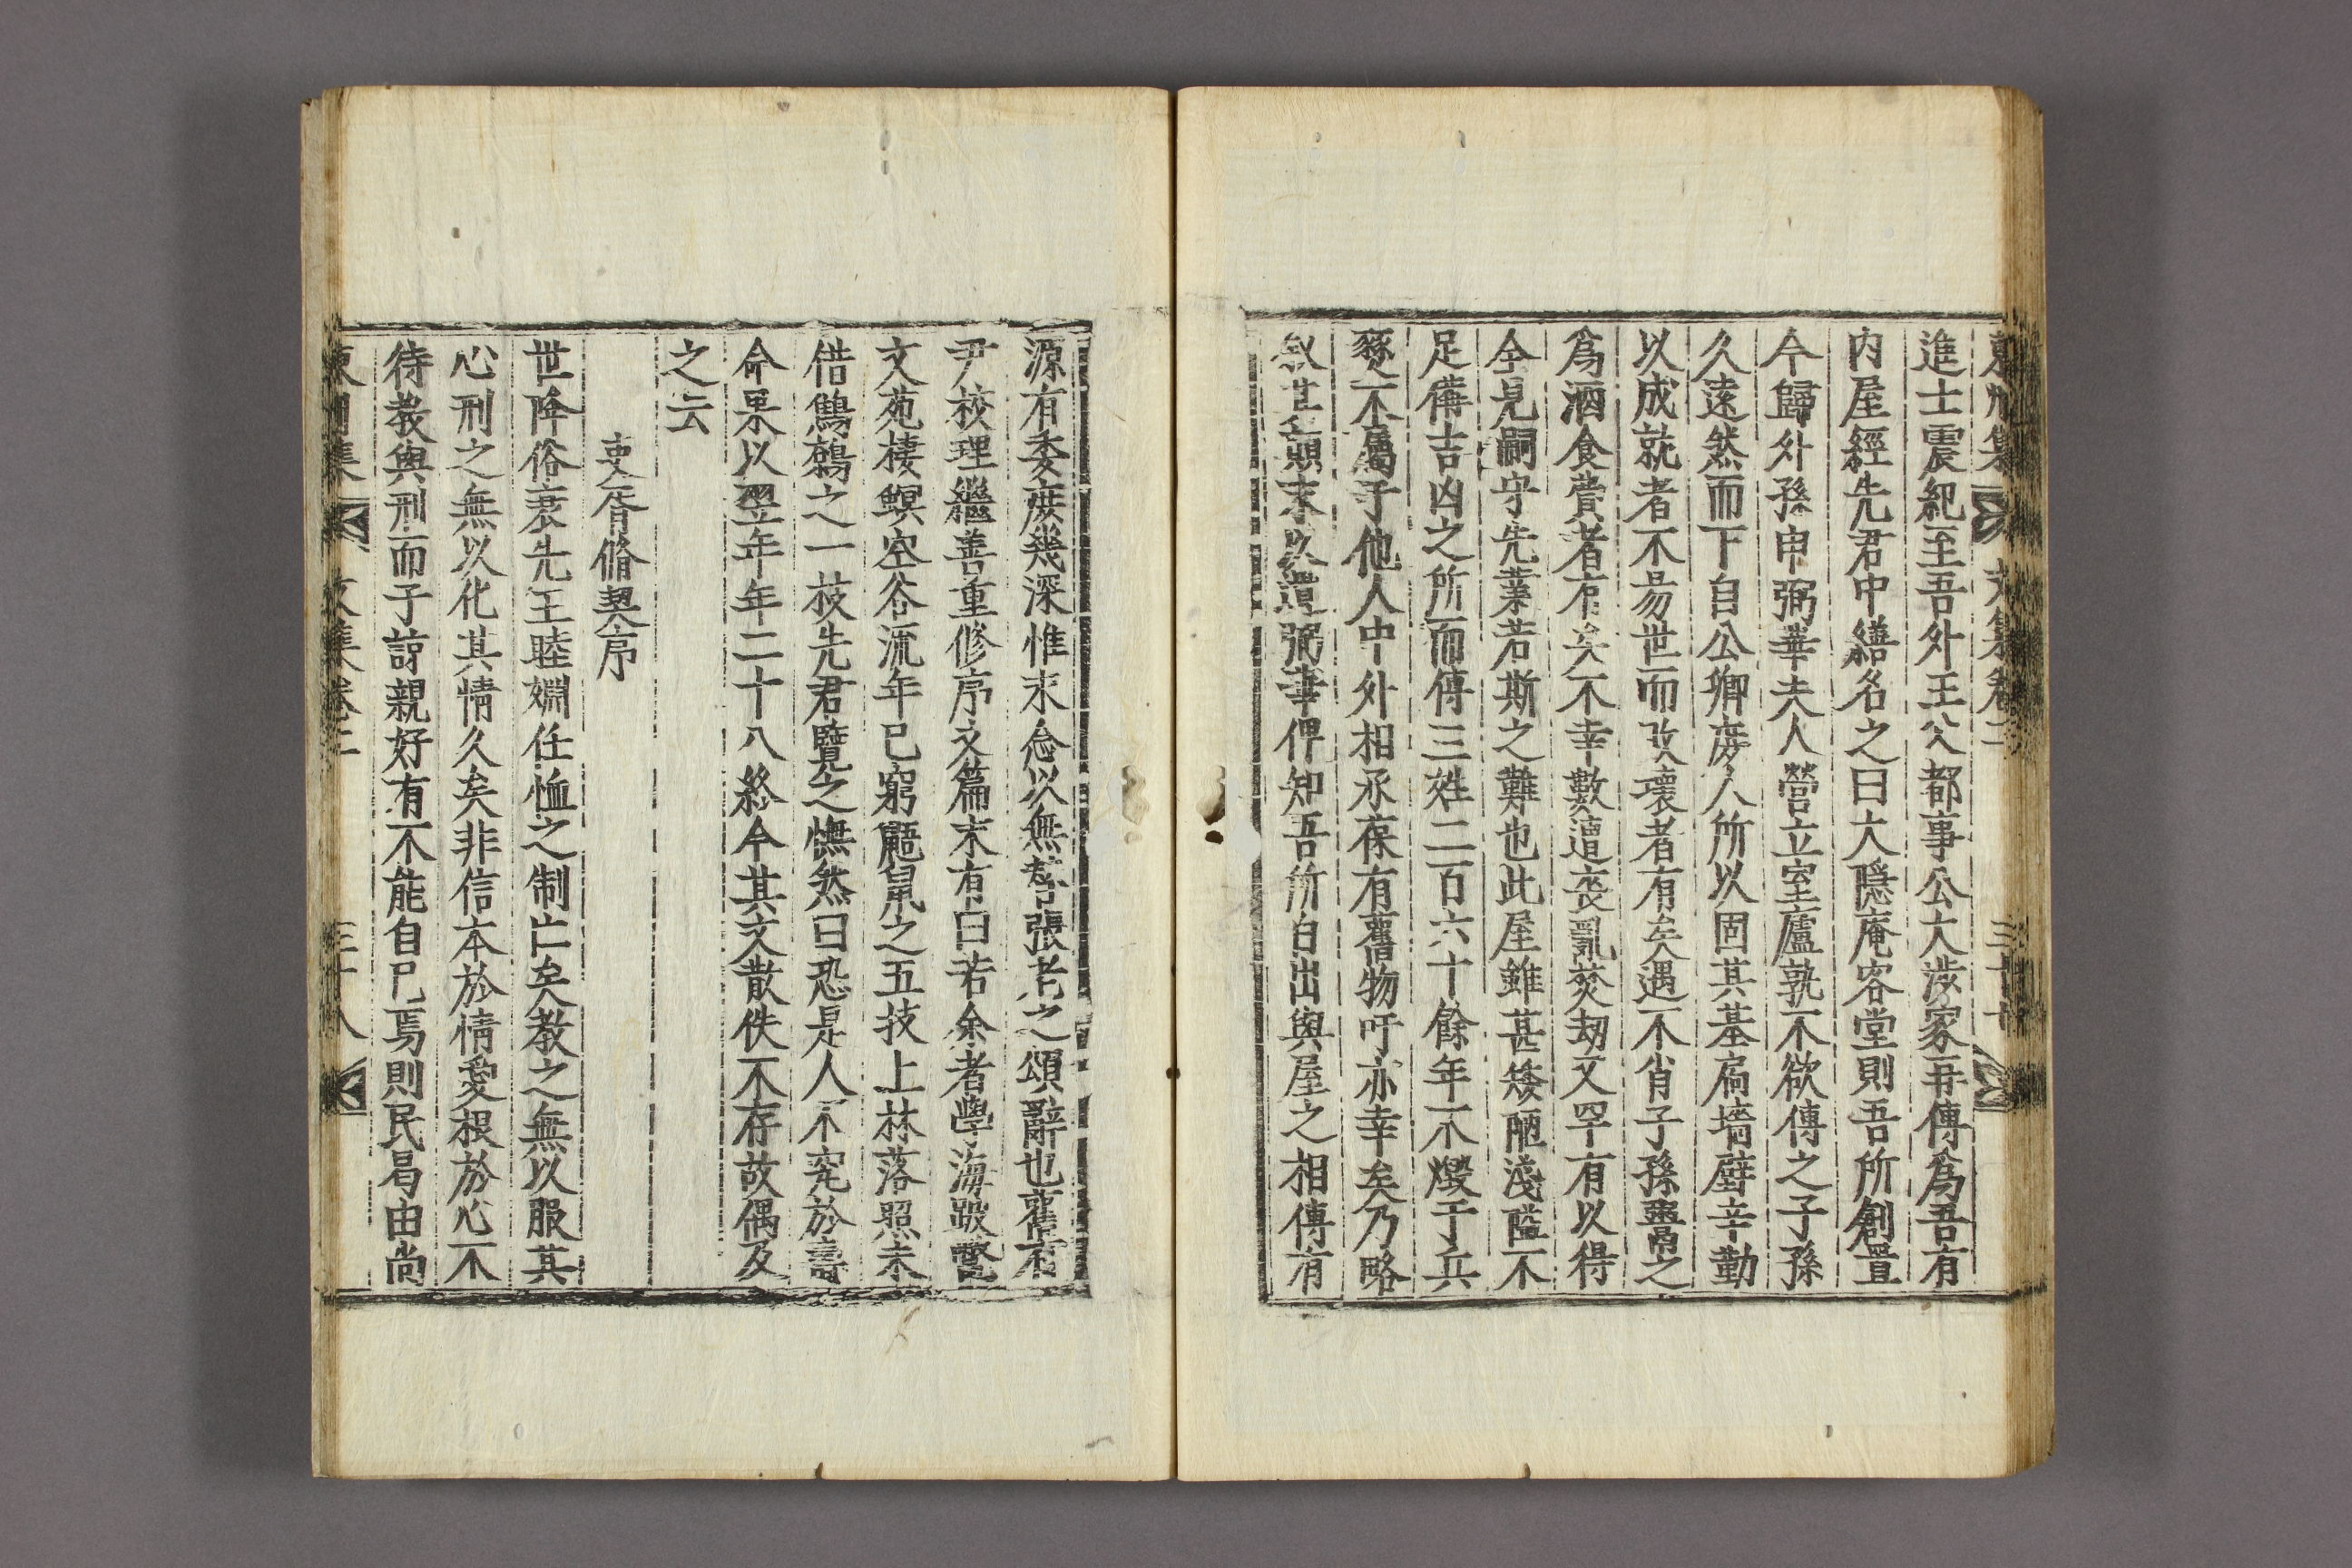 進士震紀至吾外王父都事公大涉家再傳爲吾有
内屋經先君中繕名之曰大隱庵客堂則吾所創置
今歸外孫申弼華夫人營立室廬孰不欲傳之子孫
久遠然而下自公卿庶人所以固其基扃墻壁辛勤
以成就者不易世而毁壞者有矣遇不肖子孫鬻之
爲酒食費者有矣不幸數遭喪亂焚劫又罕有以得
全見嗣守先業若斯之難也此屋雖甚矮陋淺隘不
足備吉凶之所而傳三姓二百六十餘年不燬于兵
燹不屬于他人中外相承葆有舊物吁亦幸矣乃略
叙其顚末以遺弼華俾知吾所自出與屋之相傳有
源有委庶幾深惟末念以無替張老之頌辭也舊有
尹校理繼善重修序文篇末有曰若余者學海跛鼈
文苑棲螟空谷流年已窮鼯鼠之五技上林落照未
借鷦鷯之一枝先君覽之憮然曰恐是人不究於壽
命果以翌年年二十八終今其文散佚不存故偶及
之云
吏胥脩契序
世降俗衰先王睦婣任恤之制亡矣教之無以服其
心刑之無以化其情久矣非信本於情愛根於心不
待教與刑而子諒親好有不能自已焉則民曷由尚
東𧮾集 文集卷二 三十八